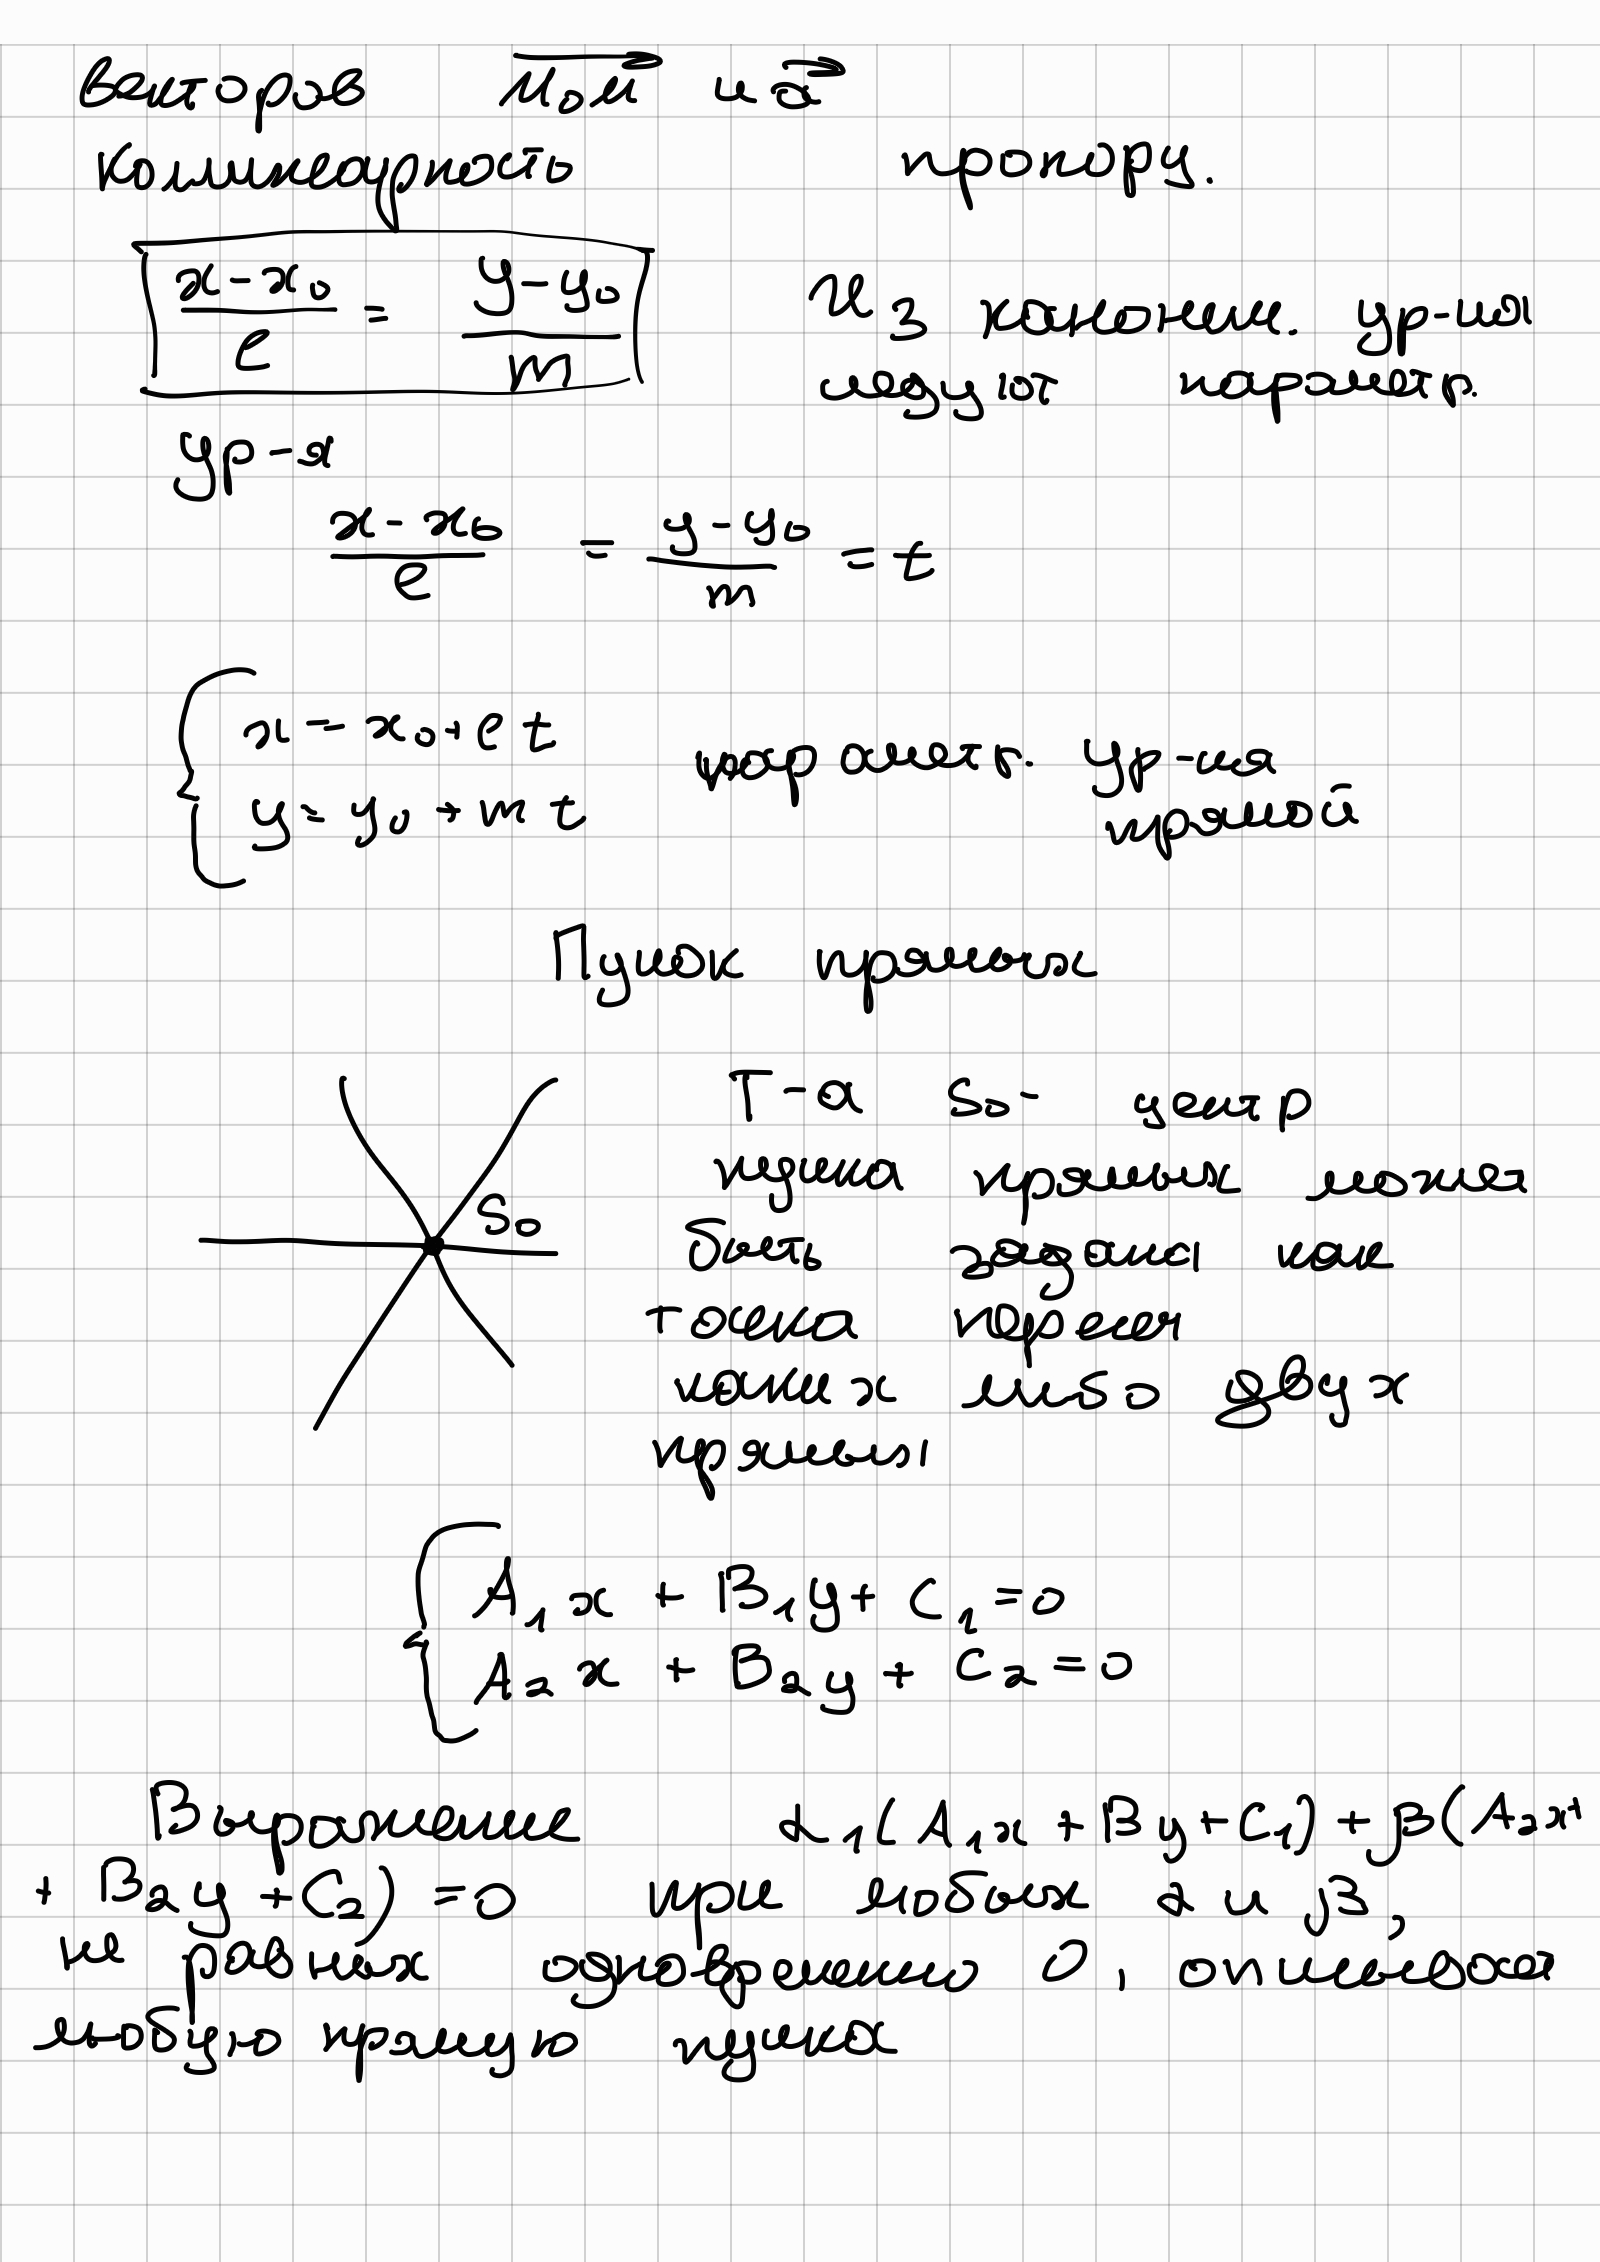 векторов M₀M и a
коллинеарность пропорц.
(x-x₀)/l = (y-y₀)/m
Из канонич. ур-ия
следуют параметр.
ур-я
(x-x₀)/l = (y-y₀)/m = t
{ x = x₀+lt
y = y₀ + mt
параметр. ур-ия
прямой
Пучок прямых
S₀
Т-а S₀- центр
пучка прямых может
быть задана как
точка пересеч
каких либо двух
прямых
{ A₁x + B₁y + C₁=0
A₂x + B₂y + C₂=0
Выражение α₁(A₁x + By+C₁) + β(A₂x+
+ B₂y +C₂) =0 при любых α и β,
не равных одновременно 0, описывает
любую прямую пучка